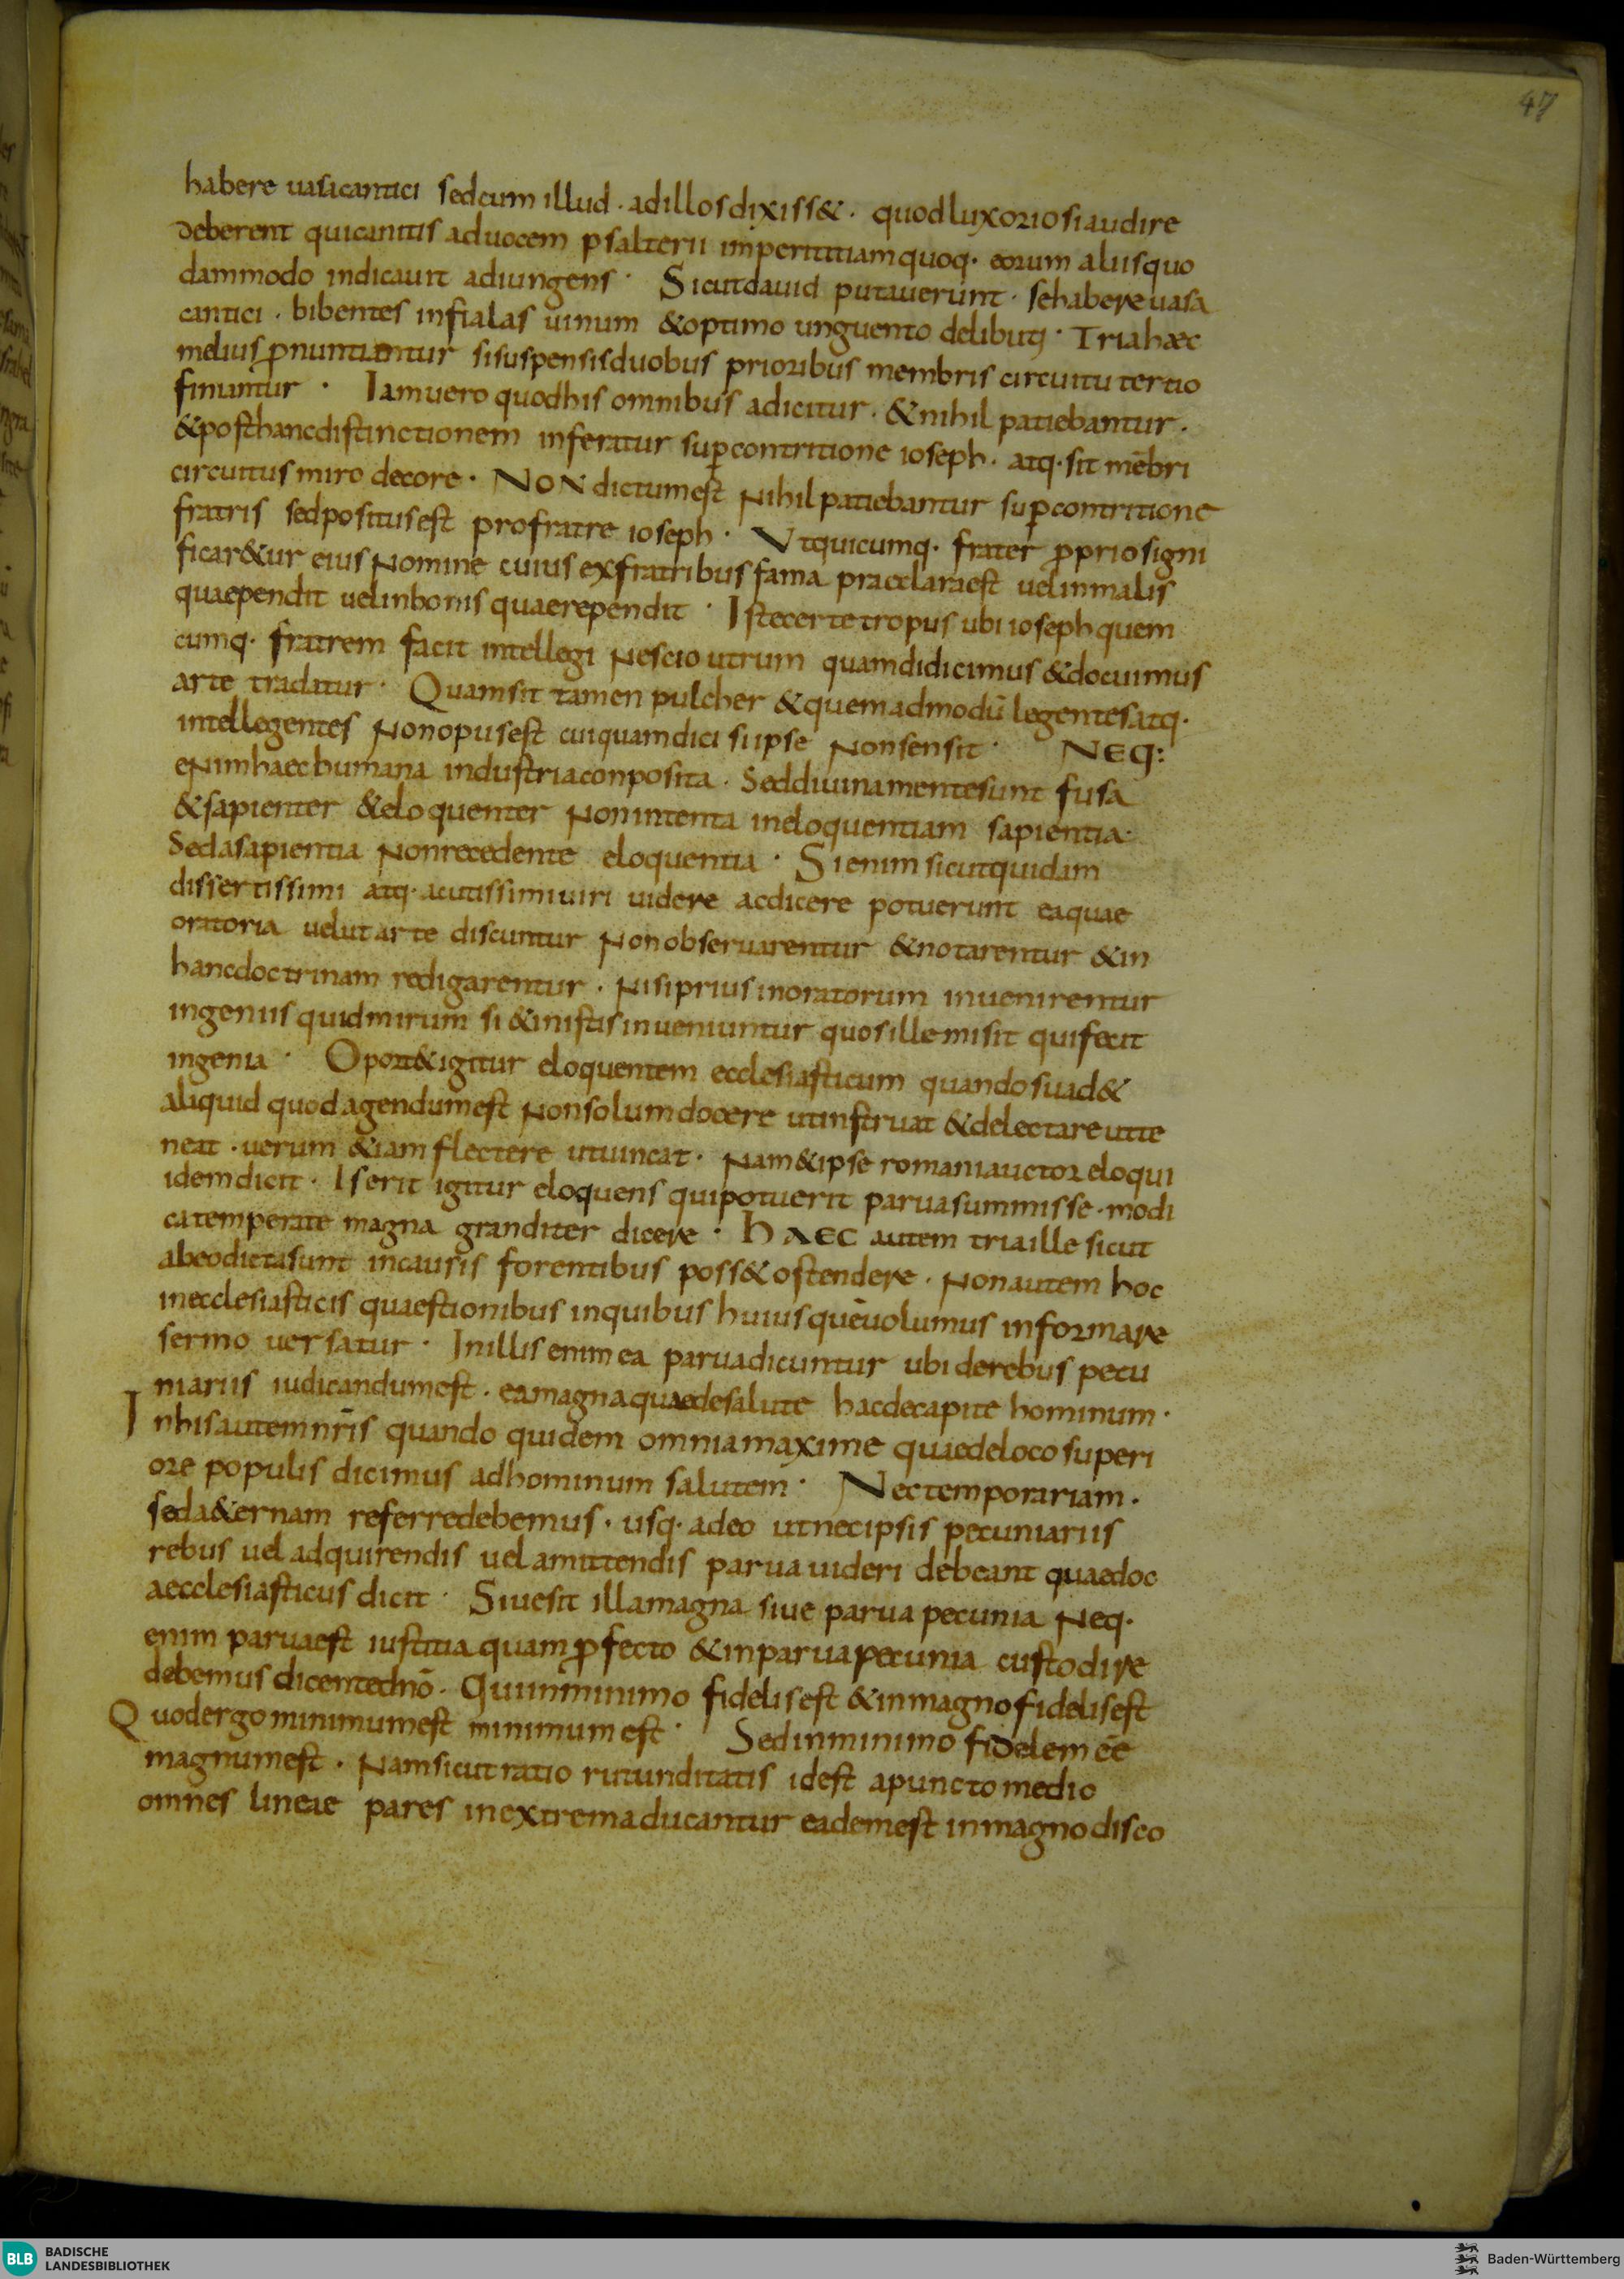 47
habere uasicantici sedcum illud · adillosdixiss& · quodluxoriosiaudire
deberent quicanitis aduocem psalterii imperititiamquoq· eorum aliisquo
dammodo indicauit adiungens · Sicutdauid putauerunt · sehabereuasa
cantici · bibentes infialas uinum &optimo unguento delibuti · Triahaec
melius ꝓnuntiantur sisuspensisduobus prioribus membris circuitu tertio
finiantur · Iamuero quodhis omnibus adicitur · &nihil patiebantur ·
&posthancdistinctionem inferatur suꝑcontritione ioseph · atq· sit mēbri
circuitus miro decore · NON dictumest Nihilpatiebantur suꝑcontritione
fratris sedpositusest profratre ioseph · Vtquicumq· frater ꝓpriosigni
ficar&ur eius Nomine cuius exfratribus fama praeclaraest uelinmalis
quaependit uelinbonis quaerependit · Istecertetropus ubi ioseph quem
cumq· fratrem facit intellegi Nescio utrum quamdidicimus &docuimus
arte tradatur · Quamsit tamen pulcher &quemadmodū legentesatq·
intellegentes Nonopusest cuiquamdici siipse Nonsensit · NEQ:
eNimhaechumana industriaconposita · Seddiuinamentesunt fusa
&sapienter &eloquenter Nonintenta ineloquentiam sapientia ·
Sedasapientia Nonrecedente eloquentia · Sienim sicutquidam
dissertissimi atq· acutissimiuiri uidere acdicere potuerunt eaquae
oratoria uelutarte discuntur Nonobseruarentur &notarentur &in
hancdoctrinam redigarentur · Nisipriusinoratorum inuenirentur
ingeniis quidmirum si &inistisinueniuntur quosillemisit quifecit
ingenia · Oport&igitur eloquentem ecclesiasticum quandosuad&
aliquid quodagendumest Nonsolumdocere utinstruat &delectareutte
neat · uerum &iam flectere utuincat · Nam&ipse romaniauctor eloqui
idemdicit · Iserit igitur eloquens quipotuerit paruasummisse · modi
catemperate magna granditer dicere · HAEC autem triaille sicut
abeodictasunt incausis forentibus poss&ostendere · Nonautem hoc
inecclesiasticis quaestionibus inquibus huiusquēuolumus informare
sermo uersatur · Inillis enim ea paruadicuntur ubi derebus pecu
niariis iudicandumest · eamagnaquaedesalute hacdecapite hominum ·
Inhisautemnr̄is quando quidem omniamaxime quaedeloco superi
ore populis dicimus adhominum salutem · Nectemporariam ·
seda&ernam referredebemus · usq· adeo utnecipsis pecuniariis
rebus uel adquirendis uel amittendis parua uideri debeant quaedoc
aecclesiasticus dicit · Siuesit illamagna siue parua pecunia Neq·
enim paruaest iustitia quam ꝓfecto &inparuapecunia custodire
debemus dicentednō · Quiinminimo fidelisest &inmagnofidelisest
Quodergominimumest minimumest · Sedinminimo fidelem ēē
magnumest · Namsicutratio rutunditatis idest apuncto medio
omnes lineae pares inextremaducantur eademest inmagnodisco
BLB BADISCHE
LANDESBIBLIOTHEK
Baden-Württemberg